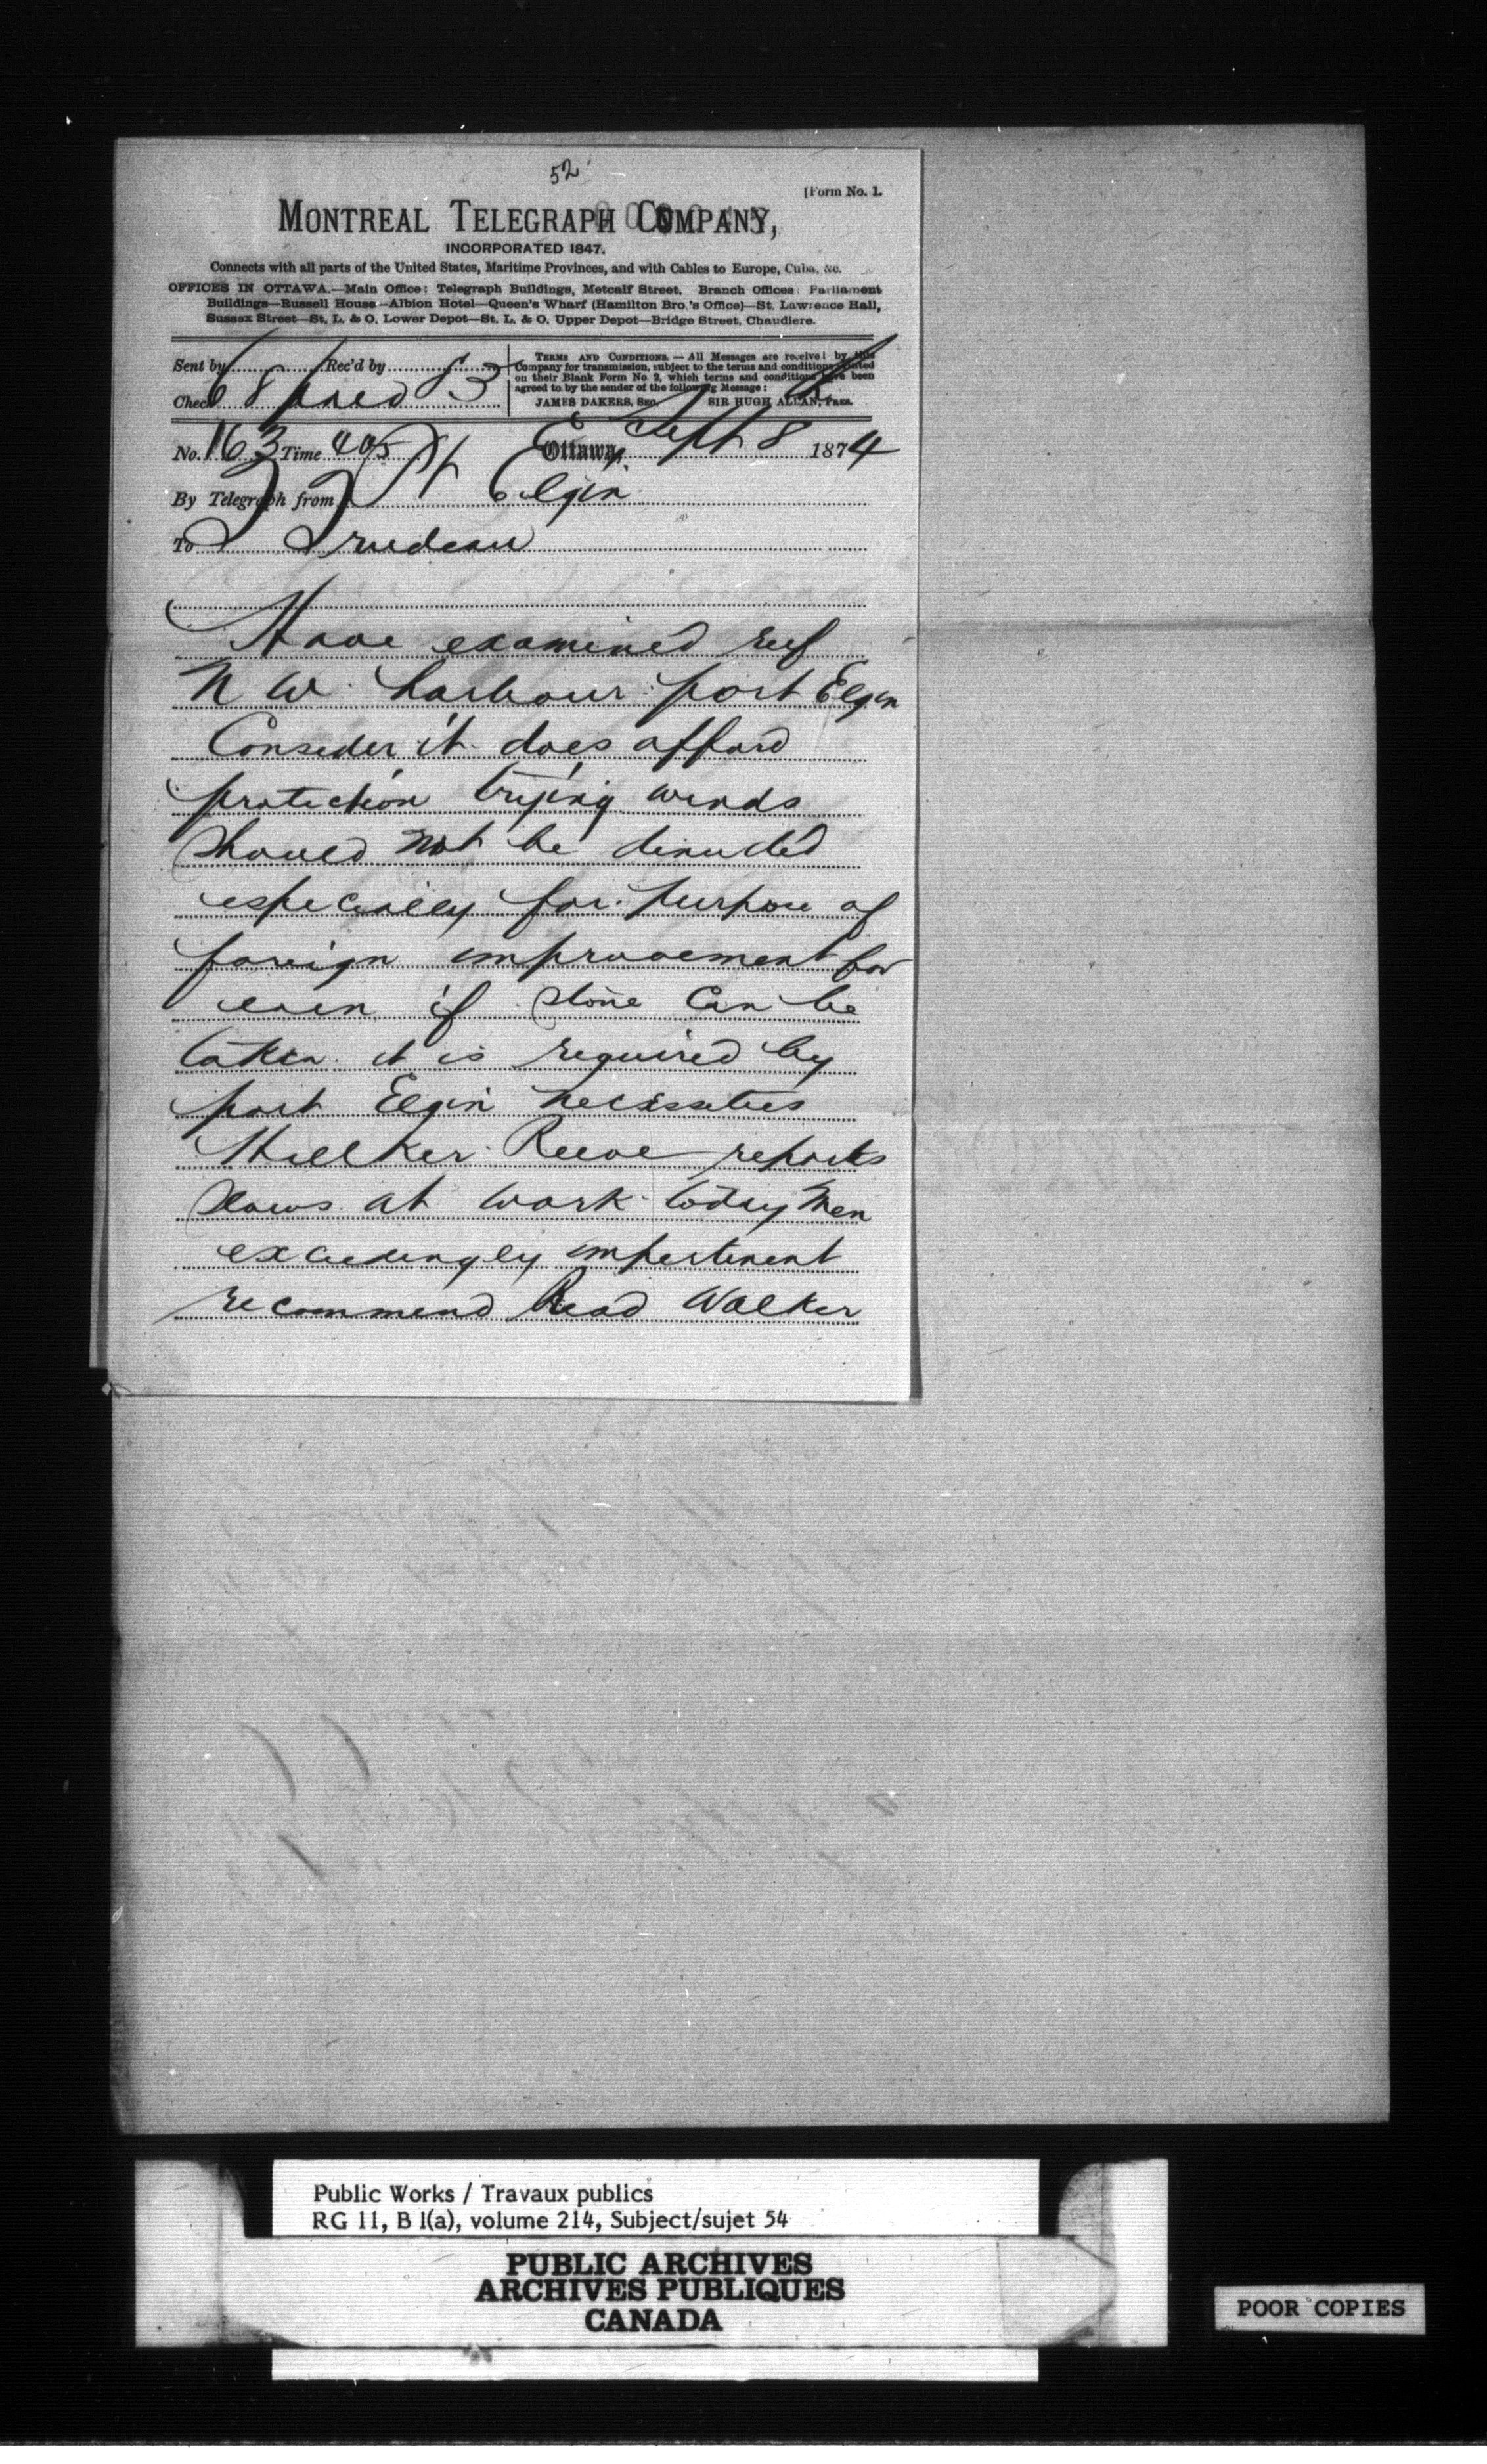 52
[Form No. 1.
MONTREAL TELEGRAPH COMPANY,
INCORPORATED 1847.
Connects with all parts of the United States, Maritime Provinces, and with Cables to Europe, Cuba, &c.
OFFICES IN OTTAWA.—Main Office: Telegraph Buildings, Metcalf Street. Branch Offices: Parliament
Buildings—Russell House—Albion Hotel—Queen's Wharf (Hamilton Bro.'s Office)—St. Lawrence Hall,
Sussex Street—St. L. & O. Lower Depot—St. L. & O. Upper Depot—Bridge Street, Chaudiere.
Sent by Rec'd by
Check 68 paid 83
TERMS AND CONDITIONS.—All Messages are received by this
Company for transmission, subject to the terms and conditions printed
on their Blank Form No. 2, which terms and conditions have been
agreed to by the sender of the following Message:
JAMES DAKERS, SEC. SIR HUGH ALLAN, PRES.
No. 163 Time 405 Ottawa, Sept 8 1874
By Telegraph from Pt Elgin
To Trudeau
Have examined reef
N W harbour port Elgin
Consider it does afford
protection trying winds
should not be denuded
especially for purpose of
foreign improvement for
even if stone can be
taken it is required by
port Elgin necessities
Hillker Reeve reports
scows at work today men
exceedingly impertinent
recommend Read Walker
Public Works / Travaux publics
RG 11, B 1(a), volume 214, Subject/sujet 54
PUBLIC ARCHIVES
ARCHIVES PUBLIQUES
CANADA
POOR COPIES